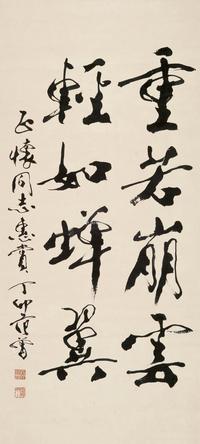 重若崩雲
輕如蟬翼
正懷同志惠賞丁卯范曾